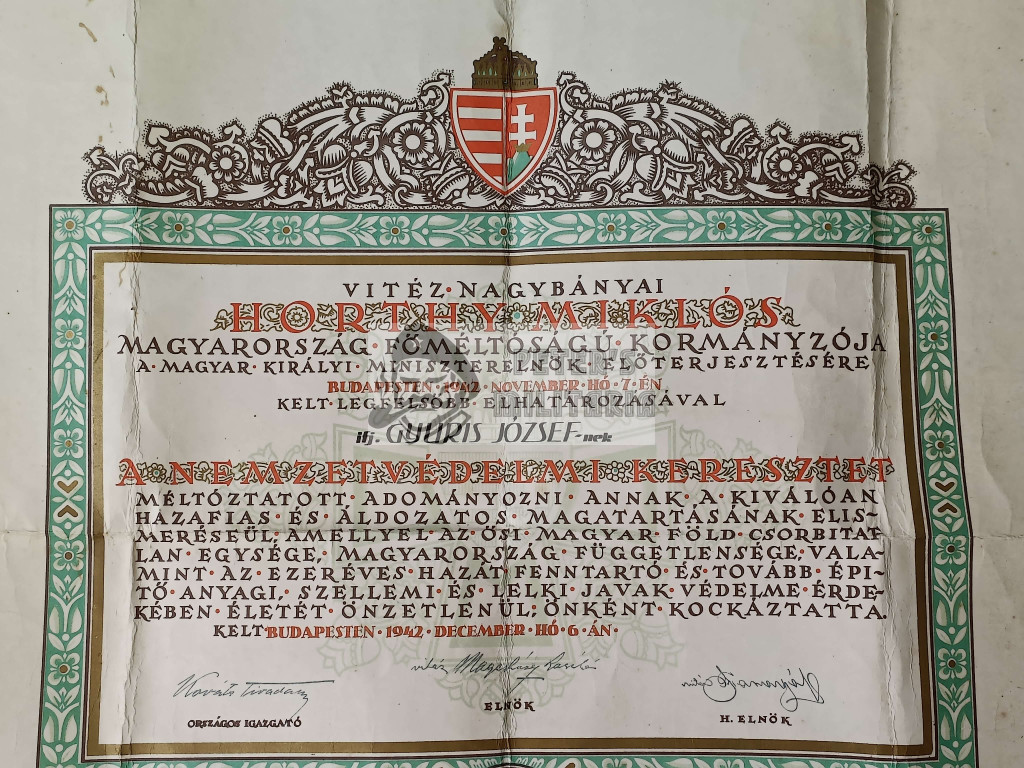 VITÉZ · NAGYBÁNYAI
HORTHY · MIKLÓS
MAGYARORSZÁG · FŐMÉLTÓSÁGÚ · KORMÁNYZÓJA
A · MAGYAR · KIRÁLYI · MINISZTERELNÖK · ELŐTERJESZTÉSÉRE
BUDAPESTEN · 1942 · NOVEMBER · HÓ · 7 · ÉN
KELT · LEGFELSŐBB · ELHATÁROZÁSÁVAL
ifj. GYURIS JÓZSEF-nek
A NEMZETVÉDELMI KERESZTET
MÉLTÓZTATOTT · ADOMÁNYOZNI · ANNAK · A · KIVÁLÓAN
HAZAFIAS · ÉS · ÁLDOZATOS · MAGATARTÁSÁNAK · ELIS-
MERÉSEÜL, AMELLYEL · AZ · ŐSI · MAGYAR · FÖLD · CSORBITAT-
LAN · EGYSÉGE, MAGYARORSZÁG · FÜGGETLENSÉGE, VALA-
MINT · AZ · EZERÉVES · HAZÁT · FENNTARTÓ · ÉS · TOVÁBB · ÉPI-
TŐ · ANYAGI, SZELLEMI · ÉS · LELKI · JAVAK · VÉDELME · ÉRDE-
KÉBEN · ÉLETÉT · ÖNZETLENÜL, ÖNKÉNT · KOCKÁZTATTA.
KELT · BUDAPESTEN · 1942 · DECEMBER · HÓ · 6 · ÁN ·
vitéz Magasházy László
Kováts Tivadar
ELNÖK
ORSZÁGOS IGAZGATÓ
H. ELNÖK